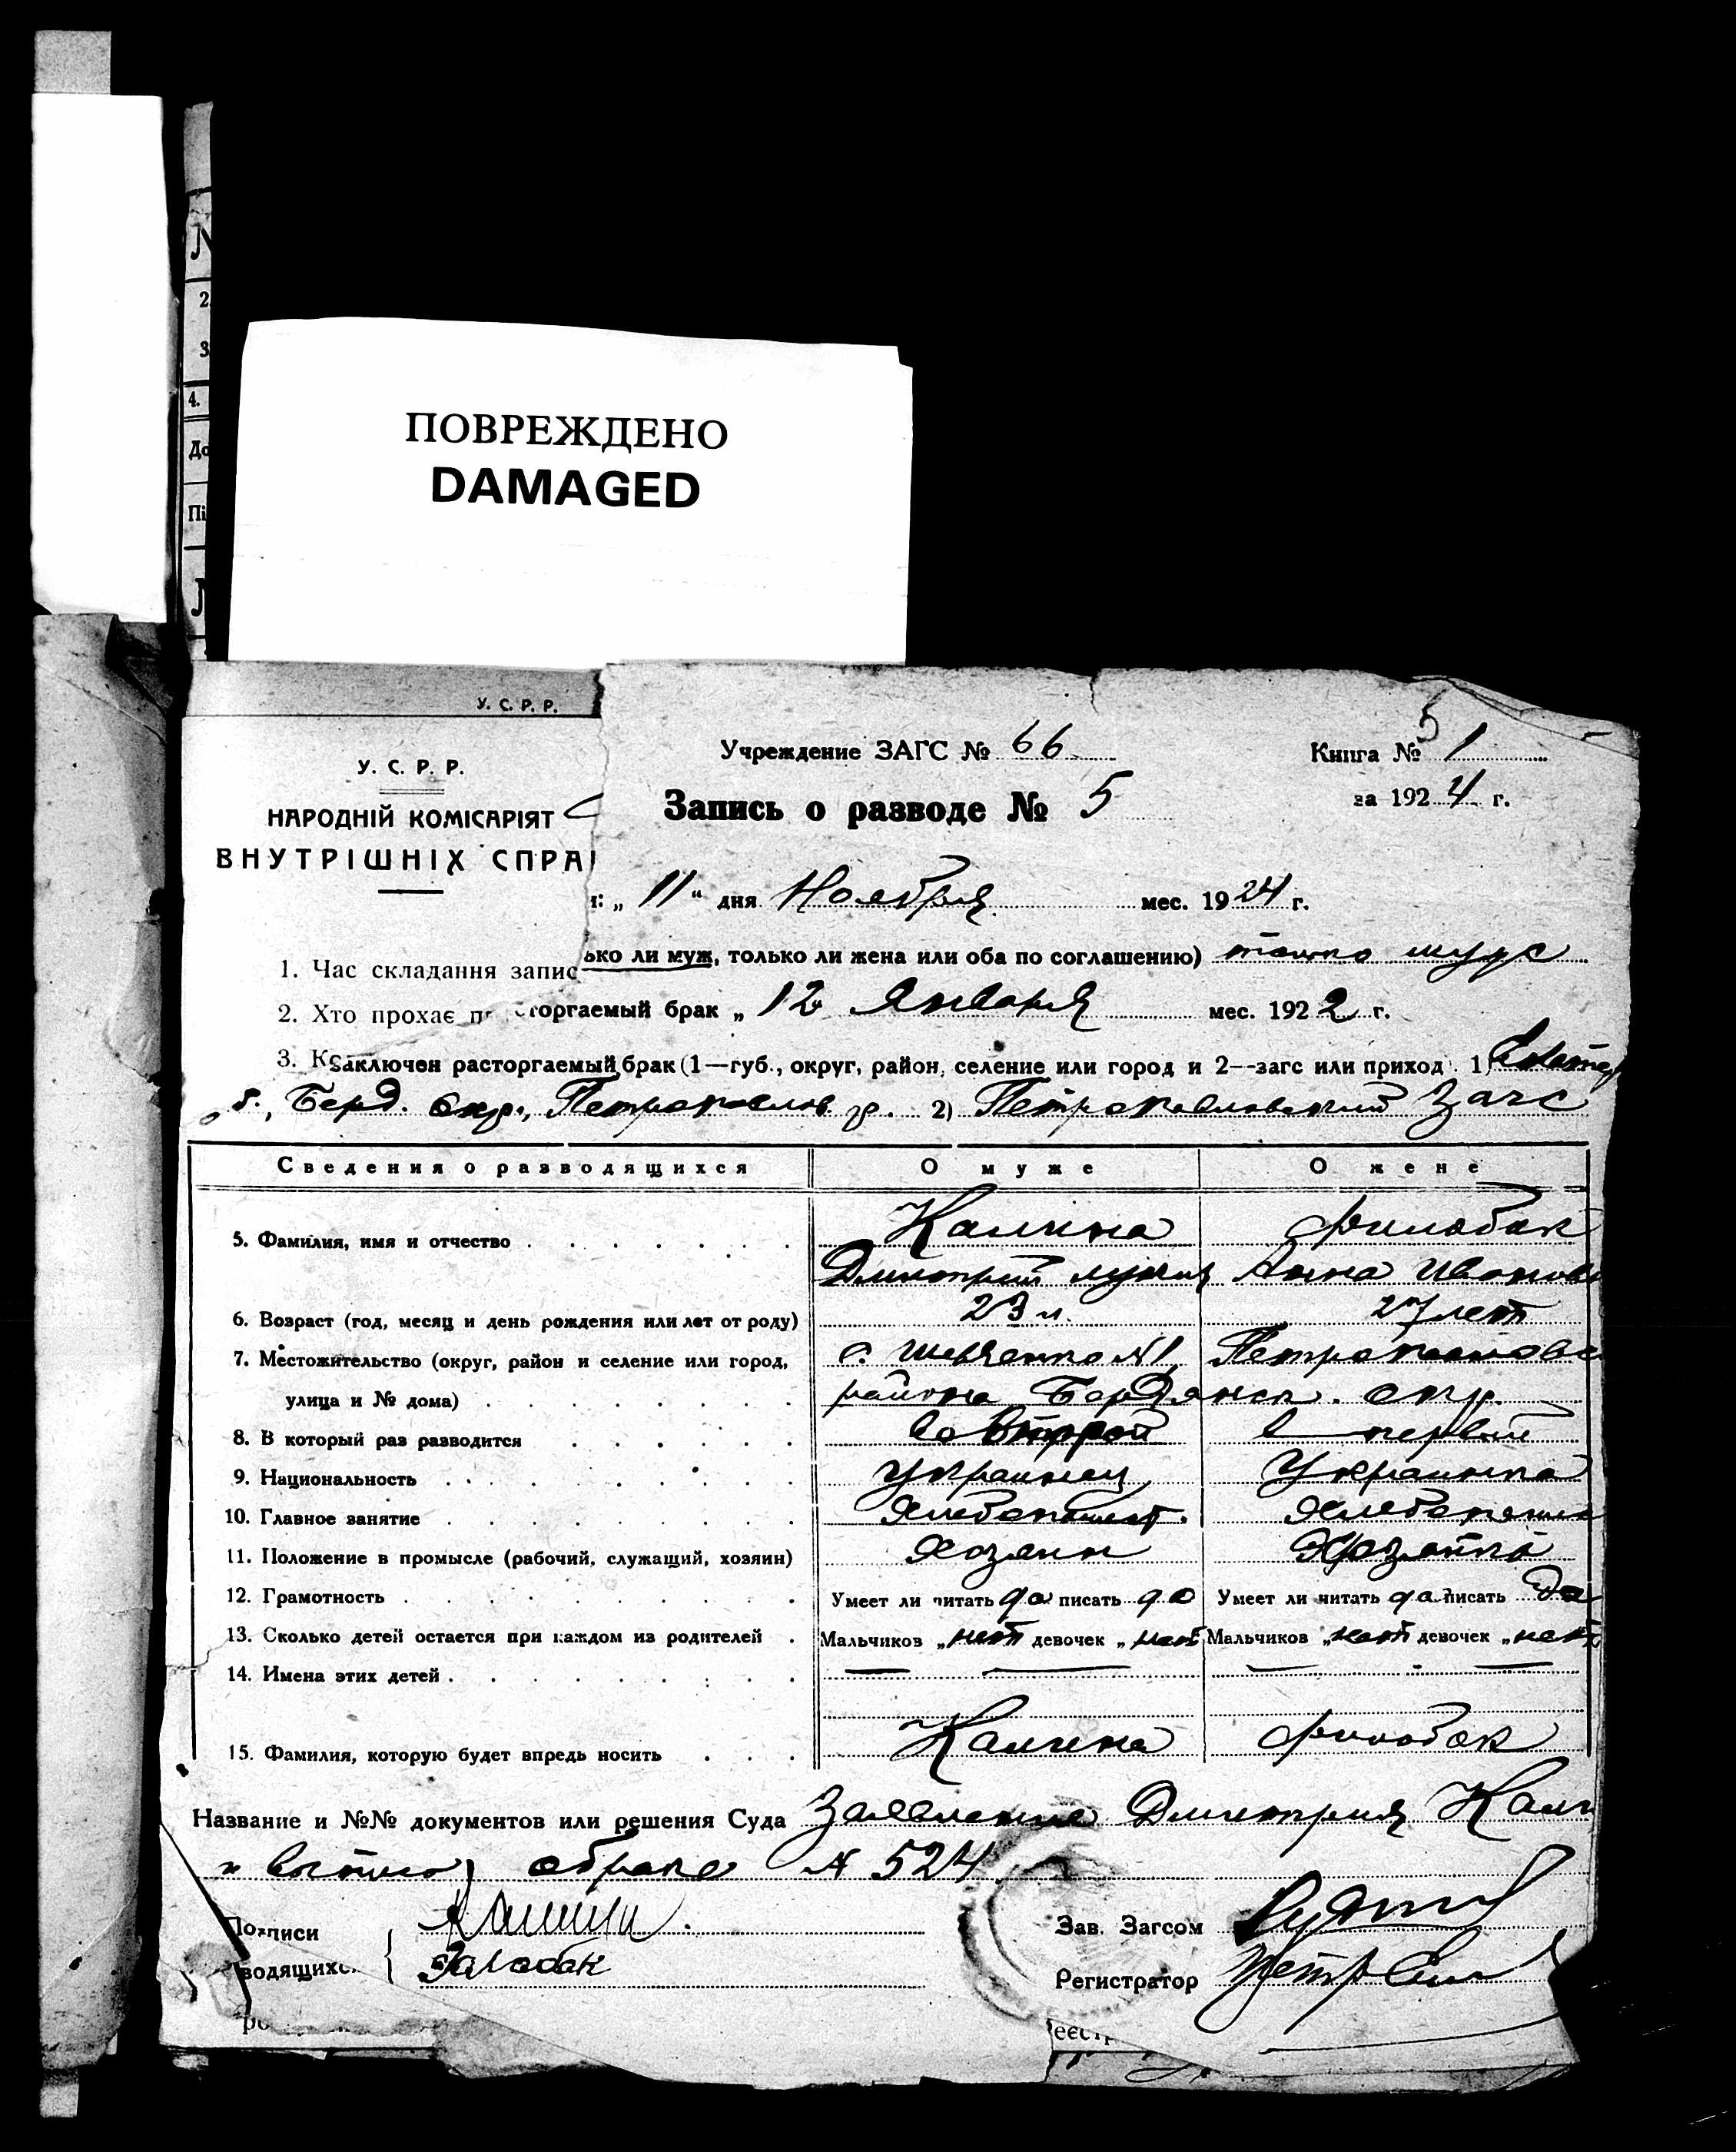 N
2
3
4.
До
Пі
ПОВРЕЖДЕНО
DAMAGED
У. С. Р. Р.
У. С. Р. Р.
НАРОДНІЙ КОМІСАРІЯТ
ВНУТРІШНІХ СПРА
Учреждение ЗАГС № 66
Книга № 1
5
Запись о разводе № 5
за 1924 г.
: „ 11 “ дня Ноября мес. 1924 г.
1. Час складання запис
ько ли муж, только ли жена или оба по соглашению) только муж
2. Хто прохає
торгаемый брак „ 12 Января мес. 1922 г.
3. К
заключен расторгаемый брак (1—губ., округ, район, селение или город и 2--загс или приход). 1) Екатер
г., Берд. окр., Петропавлов. р. 2) Петропавловский Загс
Сведения о разводящихся О муже О жене
5. Фамилия, имя и отчество Калина
Дмитрий Анна Иванов
6. Возраст (год, месяц и день рождения или лет от роду) 23 л. 27 лет
7. Местожительство (округ, район и селение или город, с. Шевченко №1, Петропавловс
улица и № дома) района Бердянск. окр.
8. В который раз разводится во второй в первый
9. Национальность Украинец Украинка
10. Главное занятие Хлебопашест.
11. Положение в промысле (рабочий, служащий, хозяин) Хозяин Хозяйка
12. Грамотность Умеет ли читать да писать да Умеет ли читать да писать да
13. Сколько детей остается при каждом из родителей Мальчиков „нет девочек „нет Мальчиков „нет девочек „нет
14. Имена этих детей — — — —
15. Фамилия, которую будет впредь носить Калина
Название и №№ документов или решения Суда Заявление Дмитрия Кали
о браке № 524
Подписи
Зав. Загсом
водящихс
Регистратор